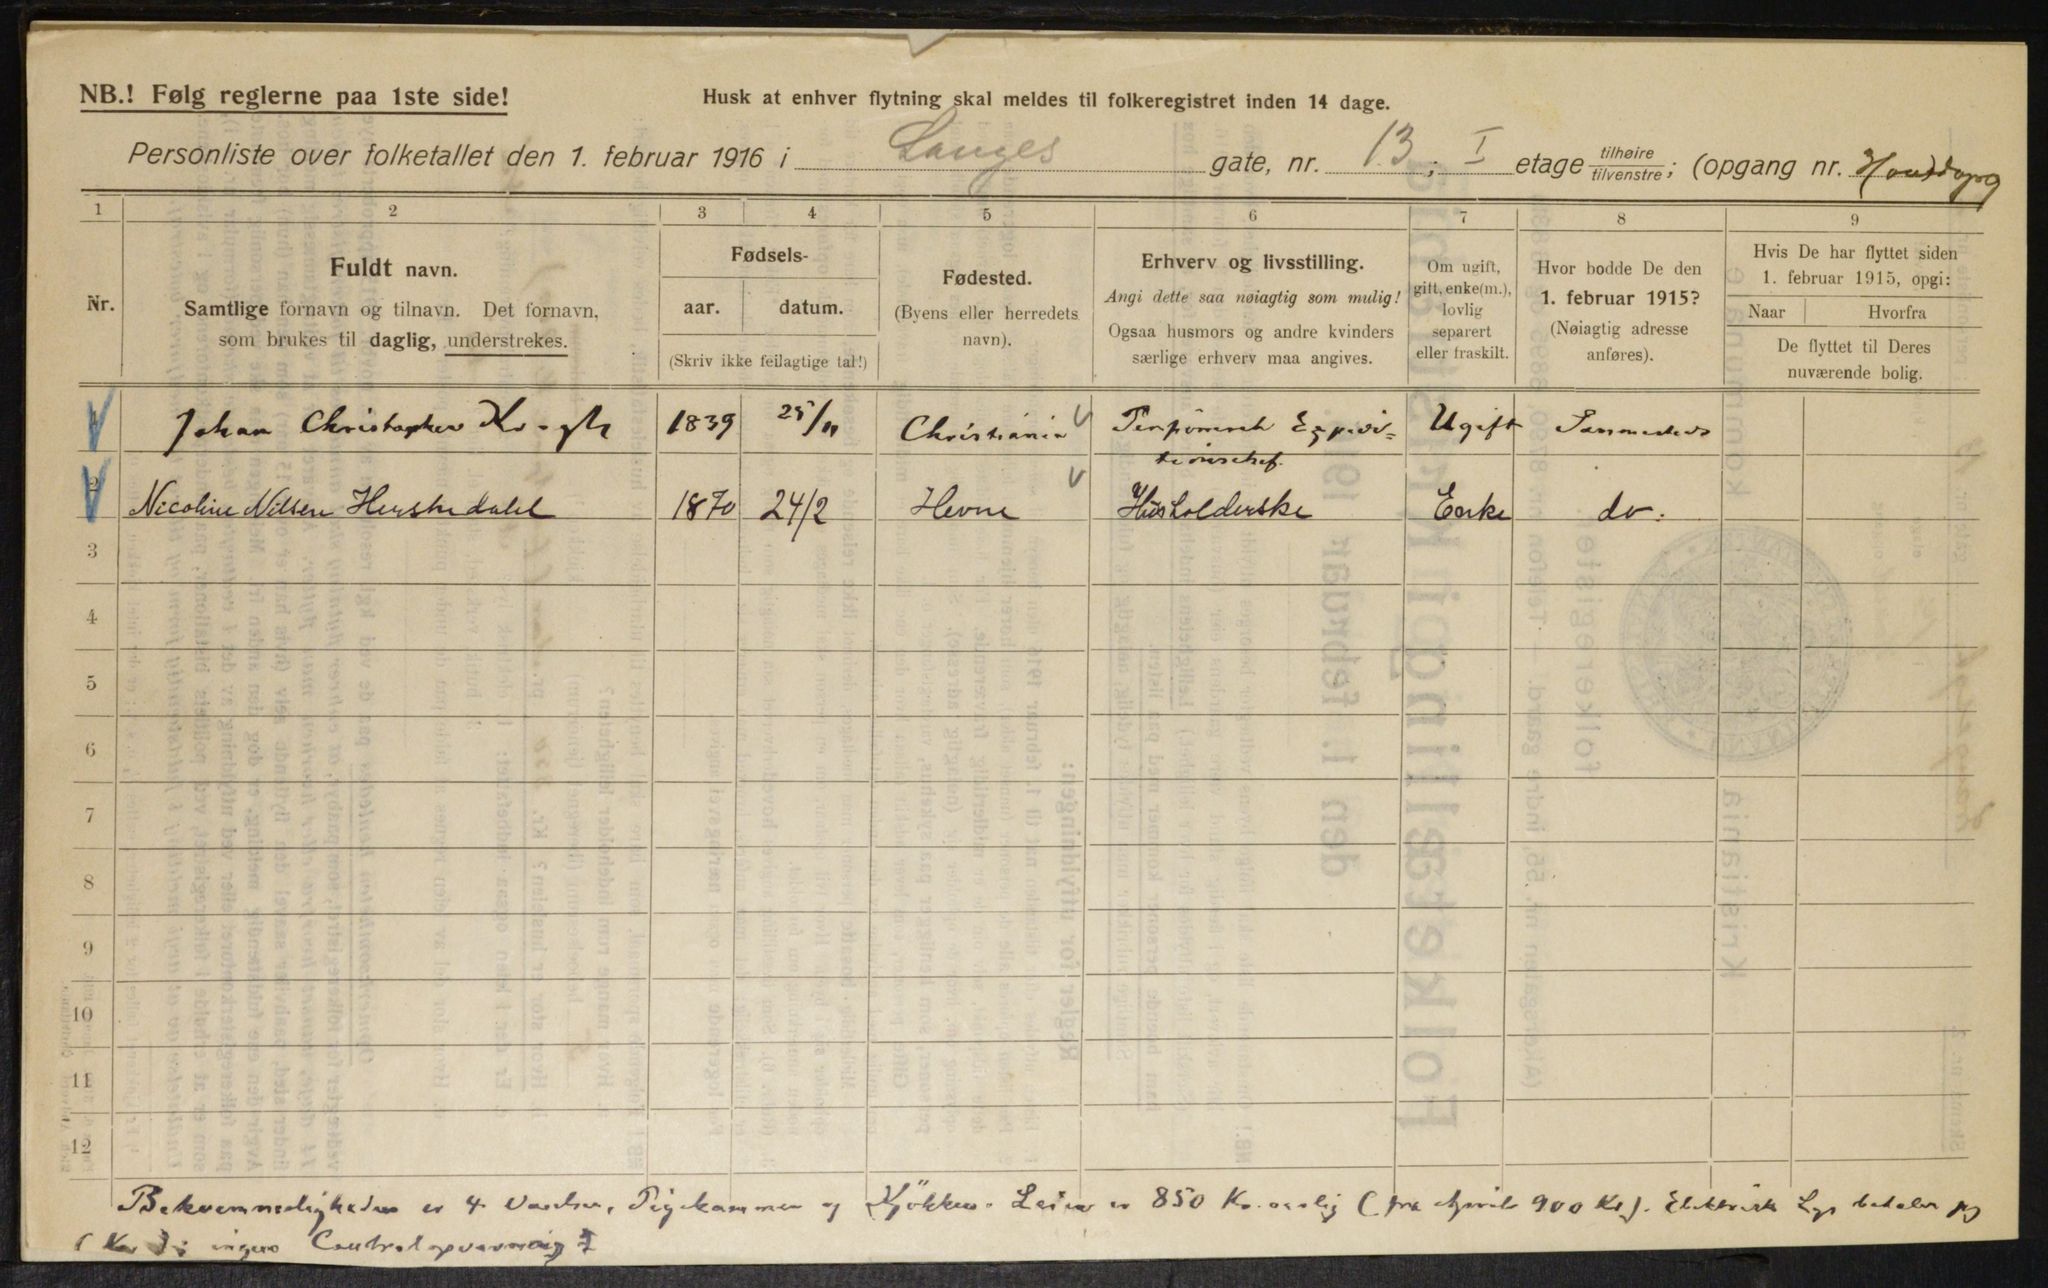 NB.! Følg reglerne paa 1ste side!
Husk at enhver flytning skal meldes til folkeregistret inden 14 dage.
Personliste over folketallet den 1. februar 1916 i Langes gate, nr. 13; I etage tilhøire tilvenstre; (opgang nr.
1 2 3 4 5 6 7 8 9
Nr.
Fuldt navn.
Samtlige fornavn og tilnavn. Det fornavn,
som brukes til daglig, understrekes.
Fødsels-
aar. datum.
(Skriv ikke feilagtige tal!)
Fødested.
(Byens eller herredets
navn).
Erhverv og livsstilling.
Angi dette saa nøiagtig som mulig!
Ogsaa husmors og andre kvinders
særlige erhverv maa angives.
Om ugift,
gift, enke(m.),
lovlig
separert
eller fraskilt.
Hvor bodde De den
1. februar 1915?
(Nøiagtig adresse
anføres).
Hvis De har flyttet siden
1. februar 1915, opgi:
Naar Hvorfra
De flyttet til Deres
nuværende bolig.
1 Johan Christopher 1839 25/11 Christiania Ugift
2 Nicoline Nilsen 1870 24/2 Hevne Husholderske Enke do.
3
4
5
6
7
8
9
10
11
12
er 4 Pigekammer og Kjökken. Leien er 850 Kr. aarlig (fra April 900 Kr). Elektrisk Lys betaler jeg
ingen